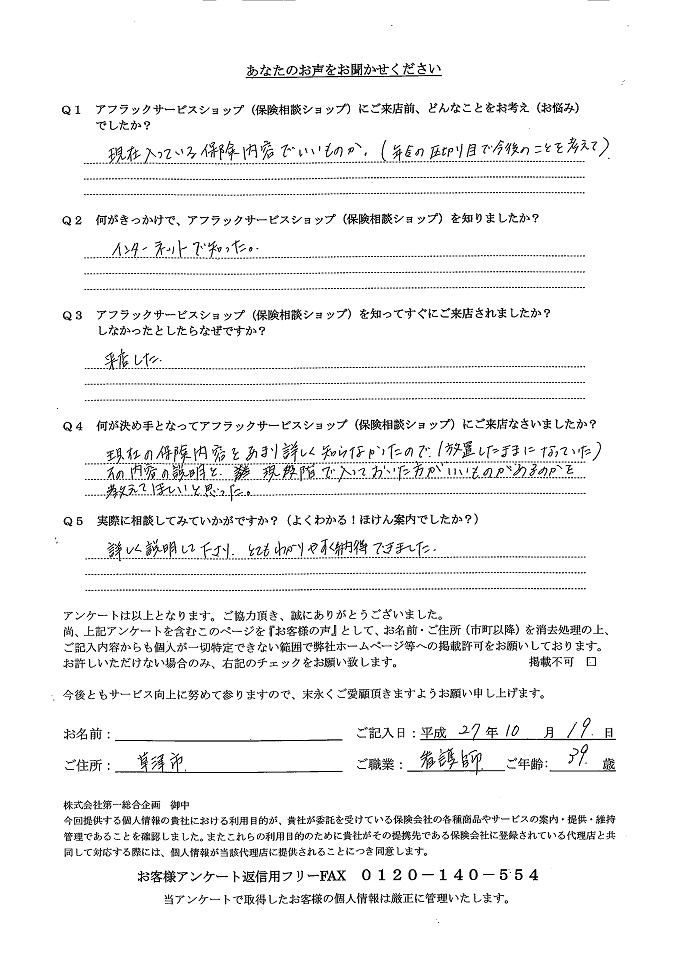 あなたのお声をお聞かせください
Q1 アフラックサービスショップ（保険相談ショップ）にご来店前、どんなことをお考え（お悩み）
でしたか？
現在入っている保険内容でいいものか。（年令の区切り目で今後のことを考えて）
Q2 何がきっかけで、アフラックサービスショップ（保険相談ショップ）を知りましたか？
インターネットで知った。
Q3 アフラックサービスショップ（保険相談ショップ）を知ってすぐにご来店されましたか？
しなかったとしたらなぜですか？
来店した.
Q4 何が決め手となってアフラックサービスショップ（保険相談ショップ）にご来店なさいましたか？
現在の保険内容をあまり詳しく知らなかったので（放置したままになっていた）
その内容の説明と、現段階で入っておいた方がいいものがあるのかを
教えてほしいと思った。
Q5 実際に相談してみていかがですか？（よくわかる！ほけん案内でしたか？）
詳しく説明して下さり、とてもわかりやすく納得できました.
アンケートは以上となります。ご協力頂き、誠にありがとうございました。
尚、上記アンケートを含むこのページを『お客様の声』として、お名前・ご住所（市町以降）を消去処理の上、
ご記入内容からも個人が一切特定できない範囲で弊社ホームページ等への掲載許可をお願いしております。
お許しいただけない場合のみ、右記のチェックをお願い致します。 掲載不可 □
今後ともサービス向上に努めて参りますので、末永くご愛顧頂きますようお願い申し上げます。
お名前： ご記入日：平成 27 年 10 月 19 日
ご住所： 草津市 ご職業： 看護師 ご年齢： 39 歳
株式会社第一総合企画 御中
今回提供する個人情報の貴社における利用目的が、貴社が委託を受けている保険会社の各種商品やサービスの案内・提供・維持
管理であることを確認しました。またこれらの利用目的のために貴社がその提携先である保険会社に登録されている代理店と共
同して対応する際には、個人情報が当該代理店に提供されることにつき同意します。
お客様アンケート返信用フリーFAX 0120－140－554
当アンケートで取得したお客様の個人情報は厳正に管理いたします。